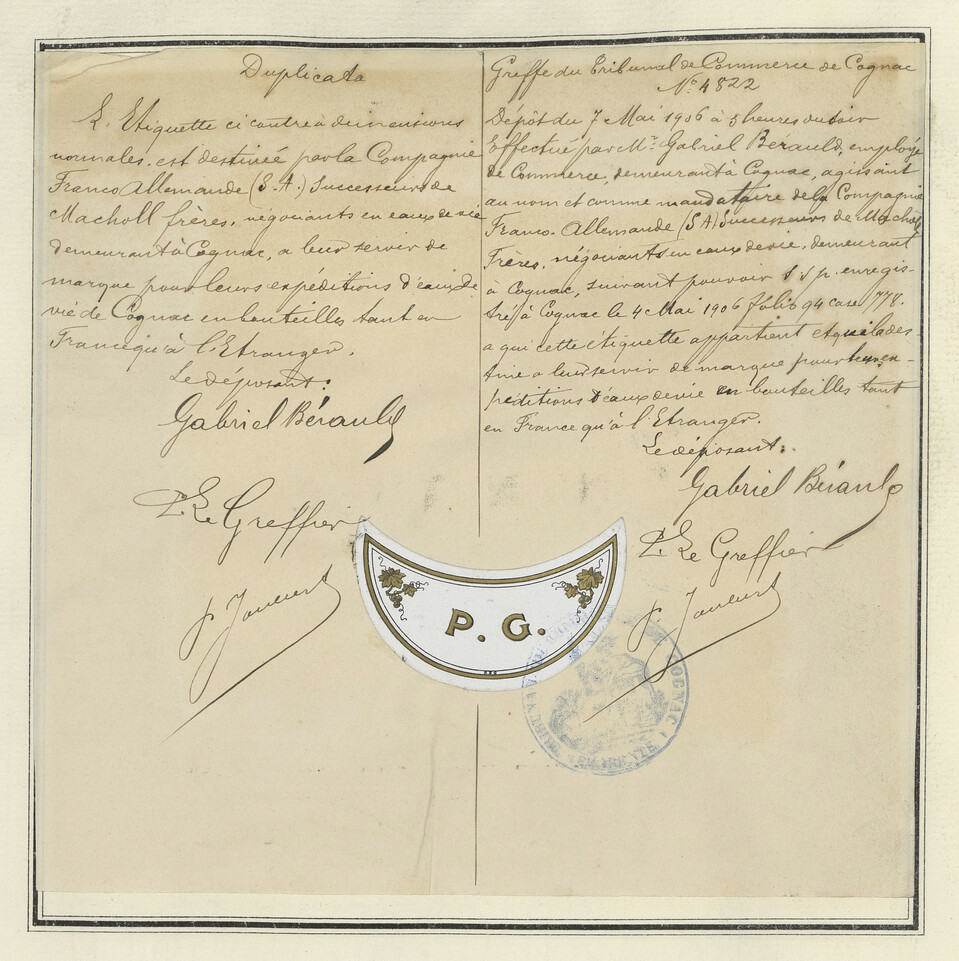 Duplicata
L'Etiquette ci contre à dimensions
normales, est destinée par la Compagnie
Franco Allemande (S.A.) Successeurs de
Macholl frères, négociants en eaux de vie
demeurant à Cognac, a leur servir de
marque pour leurs expéditions d'eaux de
vie de Cognac en bouteilles tant en
France qu'à l'Etranger.
Le déposant:
Gabriel Bérauld
P. Le Greffier
Greffe du Tribunal de Commerce de Cognac
No 4822
Dépôt du 7 Mai 1906 à 5 heures du soir
Effectué par Mr. Gabriel Bérauld, employé
de Commerce, demeurant à Cognac, agissant
au nom et comme mandataire de la Compagnie
Franco-Allemande (SA) Successeurs de Macholl
Frères, négociants en eaux de vie, demeurant
à Cognac, suivant pouvoir s s p. enregis-
tré à Cognac le 4 Mai 1906 folio 94 case 778.
a qui cette étiquette appartient et qui la des-
tine a leur servir de marque pour leurs ex-
péditions d'eaux de vie en bouteilles tant
en France qu'à l'Etranger.
Le déposant:
Gabriel Bérauld
P. Le Greffier
P. G.
TRIBUNAL DE COMMERCE COGNAC